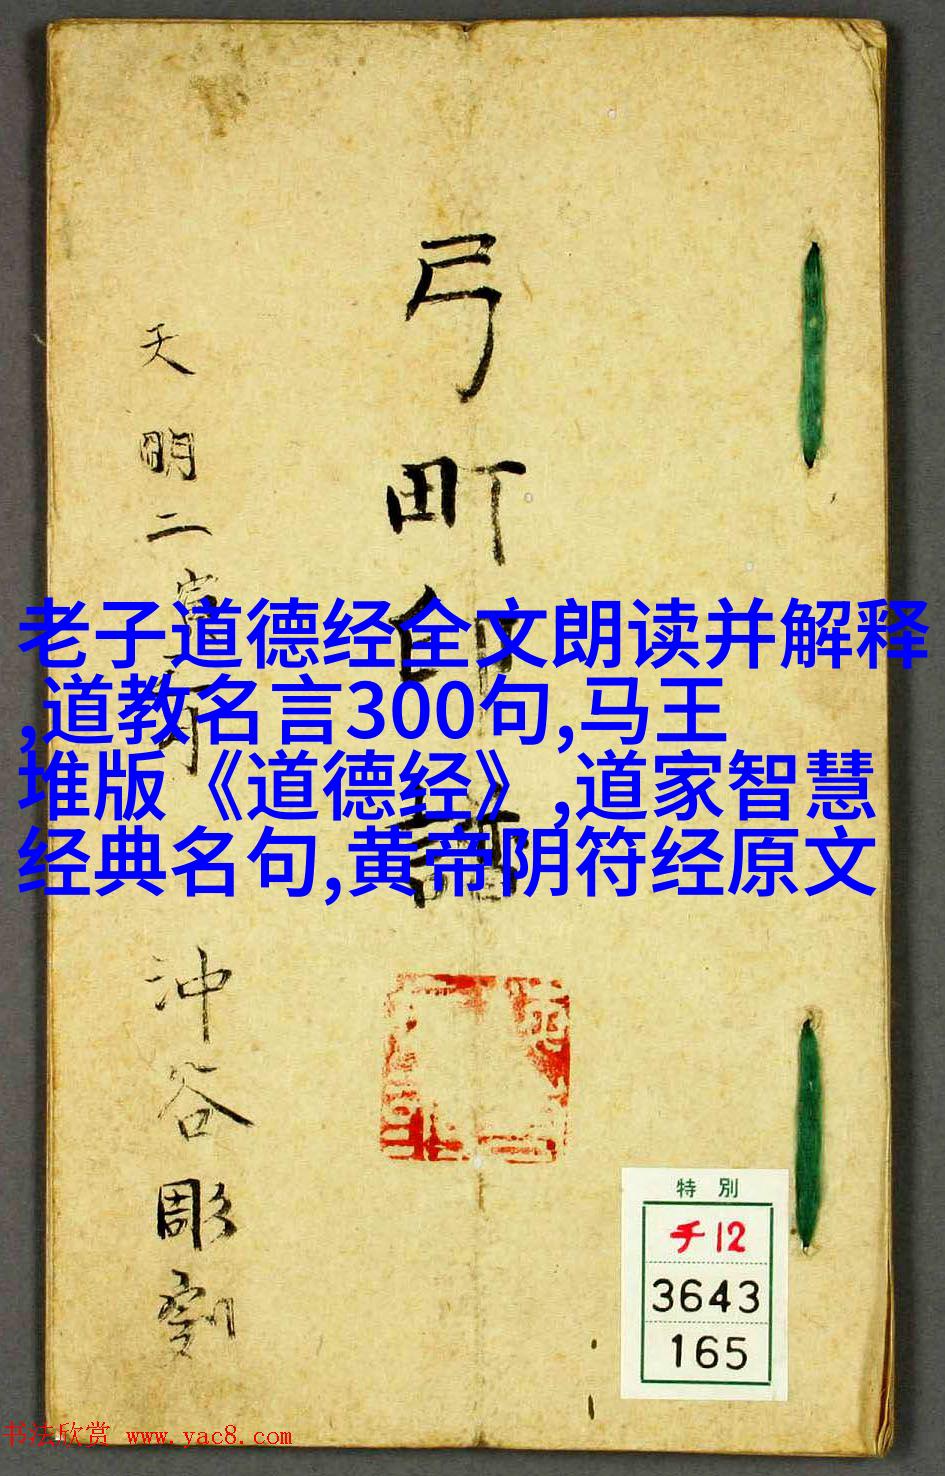 弓町印譜
天明二寅
沖谷彫刻
老子道德经全文朗读并解释
,道教名言300句,马王
堆版《道德经》,道家智慧
经典名句,黄帝阴符经原文
特別
チ12
3643
165
书法欣赏 www.yac8.com